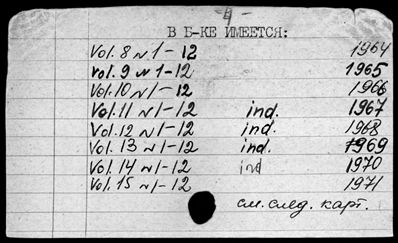 - 4 -
В Б-КЕ ИМЕЕТСЯ:
Vol. 8 N 1-12 1964
Vol. 9 N 1-12 1965
Vol. 10 N 1-12 1966
Vol. 11 N 1-12 ind. 1967
Vol. 12 N 1-12 ind. 1968
Vol. 13 N 1-12 ind. 1969
Vol. 14 N 1-12 ind 1970
Vol. 15 N 1-12 1971
см. след. карт.